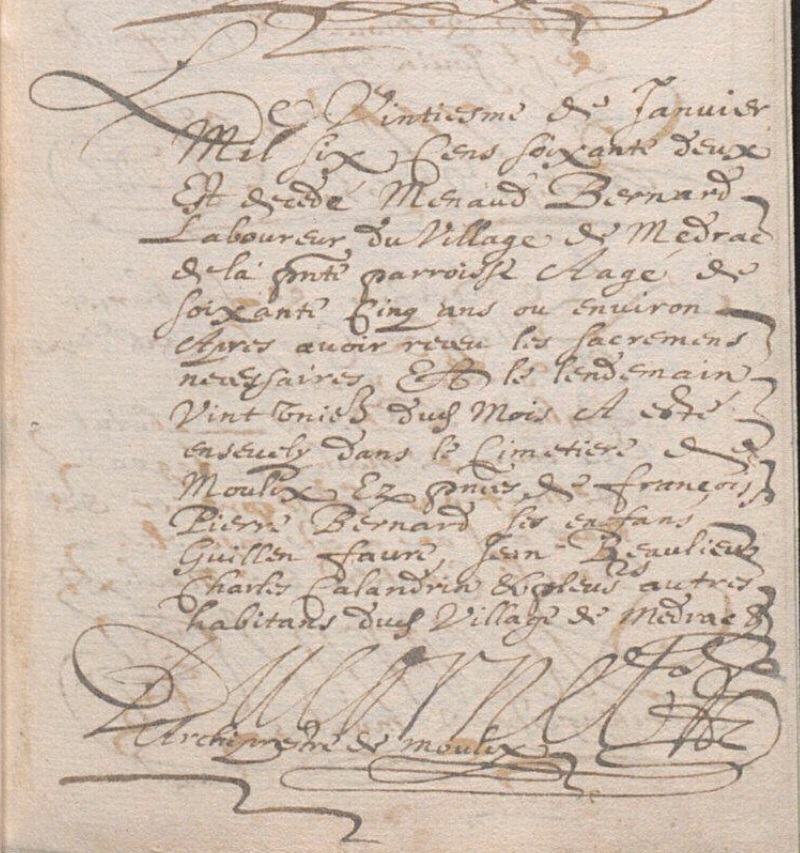 Le Vintiesme de Janvier
Mil six Cens soixante deux
Est decedé Menaud Bernard
Laboureur du Village de Medrac
de la pnte parroisse Aagé de
soixante Cinq ans ou environ
Apres avoir receu les sacremens
necessaires Et le lendemain
Vint dud Mois A esté
ensevely dans le Cimetiere de
Moulix Ez pnces de françois
Pierre Bernard ses enfans
Guillen faure Jean Beaulieu
Charles Calandrin & pleus autres
habitans dud Village de Medrac
Archiprestre de moulix